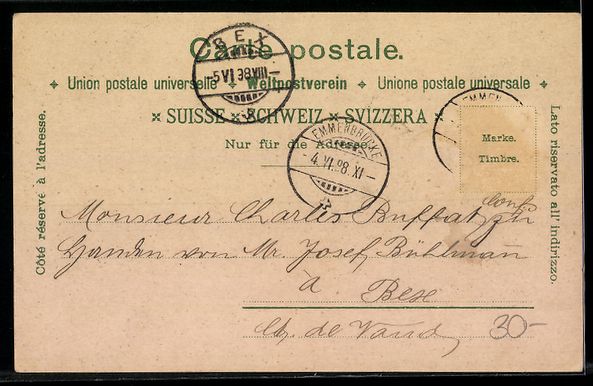 Carte postale.
Union postale universelle Weltpostverein Unione postale universale
SUISSE SCHWEIZ SVIZZERA
Nur für die Adresse.
BEX
5 VI 98 VIII
EMMENBRÜCKE
4. VI. 98. XI
EMMEN
Marke.
Timbre.
Côté réservé à l'adresse.
Lato riservato all' indirizzo.
Monsieur Charles Buffat zu
Handen von Mr Josef Bühlmann
à Bex
de Vaud
30-